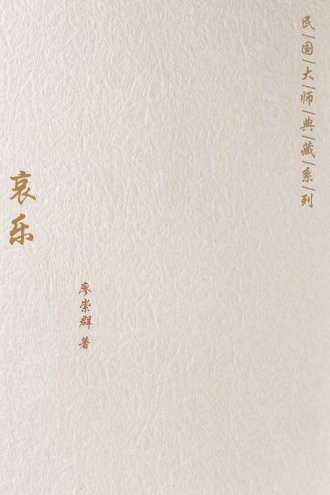 民国大师典藏系列
哀乐
廖崇群 著